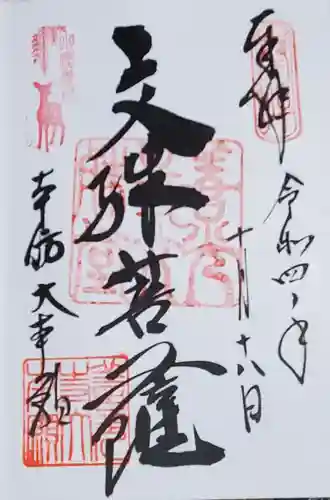 奉拝
令和四年
十月十八日
文殊菩薩
本坊大本願